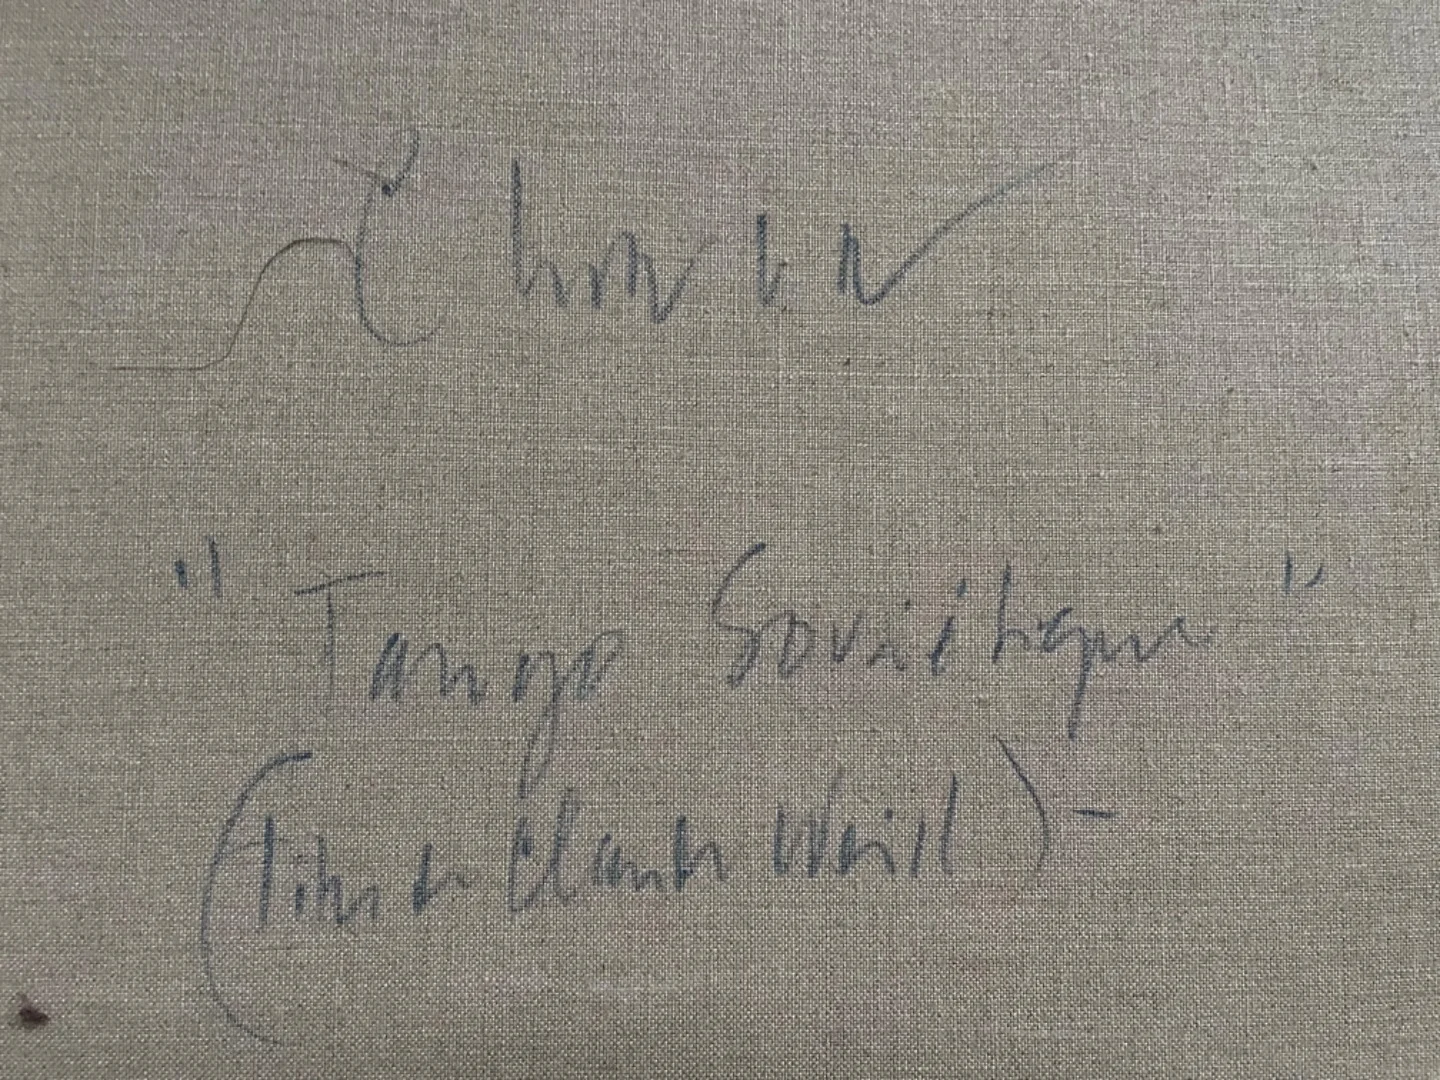 " Tango Soviétique "
(Titre de Claude Weill) -